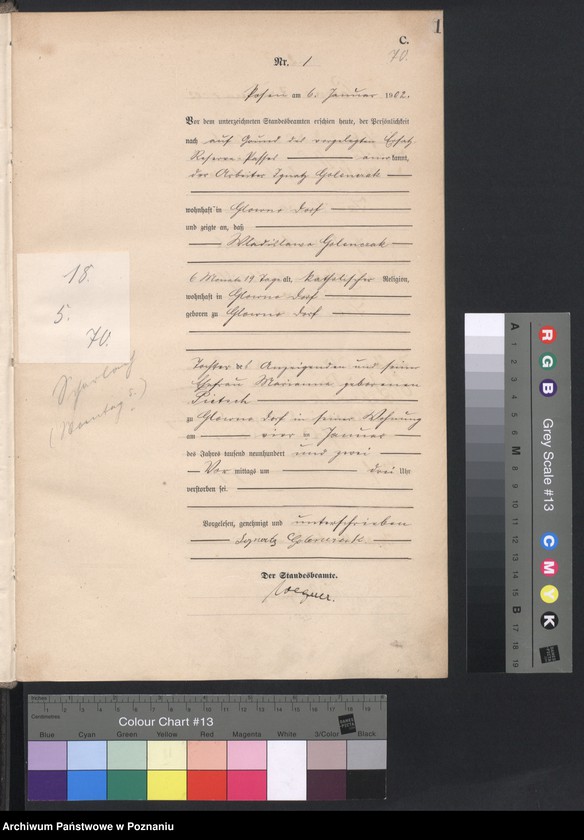 1
C.
70.
Nr. 1
Posen am 6. Januar 1902.
Vor dem unterzeichneten Standesbeamten erschien heute, der Persönlichkeit
nach auf Grund des vorgelegten Ersatz
Reserve Passes anerkannt,
der Arbeiter Ignatz
wohnhaft in Glowno Dorf
und zeigte an, daß
Wladislawa
6 Monate 19 Tage alt, katholischer Religion,
wohnhaft in Glowno Dorf
geboren zu Glowno Dorf
Tochter des Anzeigenden und seiner
Ehefrau Marianna geborenen
Pietsch
zu Glowno Dorf in seiner Wohnung
am vier Januar
des Jahres tausend neunhundert und zwei
Vor mittags um drei Uhr
verstorben sei.
Vorgelesen, genehmigt und unterschrieben
Ignatz
Der Standesbeamte.
18.
5.
70.
Colour Chart #13
Blue Cyan Green Yellow Red Magenta White 3/Color Black
Grey Scale #13
R
G
B
C
M
Y
K
A 1 2 3 4 5 6 M 8 9 10 11 12 13 14 15 B 17 18 19
Archiwum Państwowe w Poznaniu